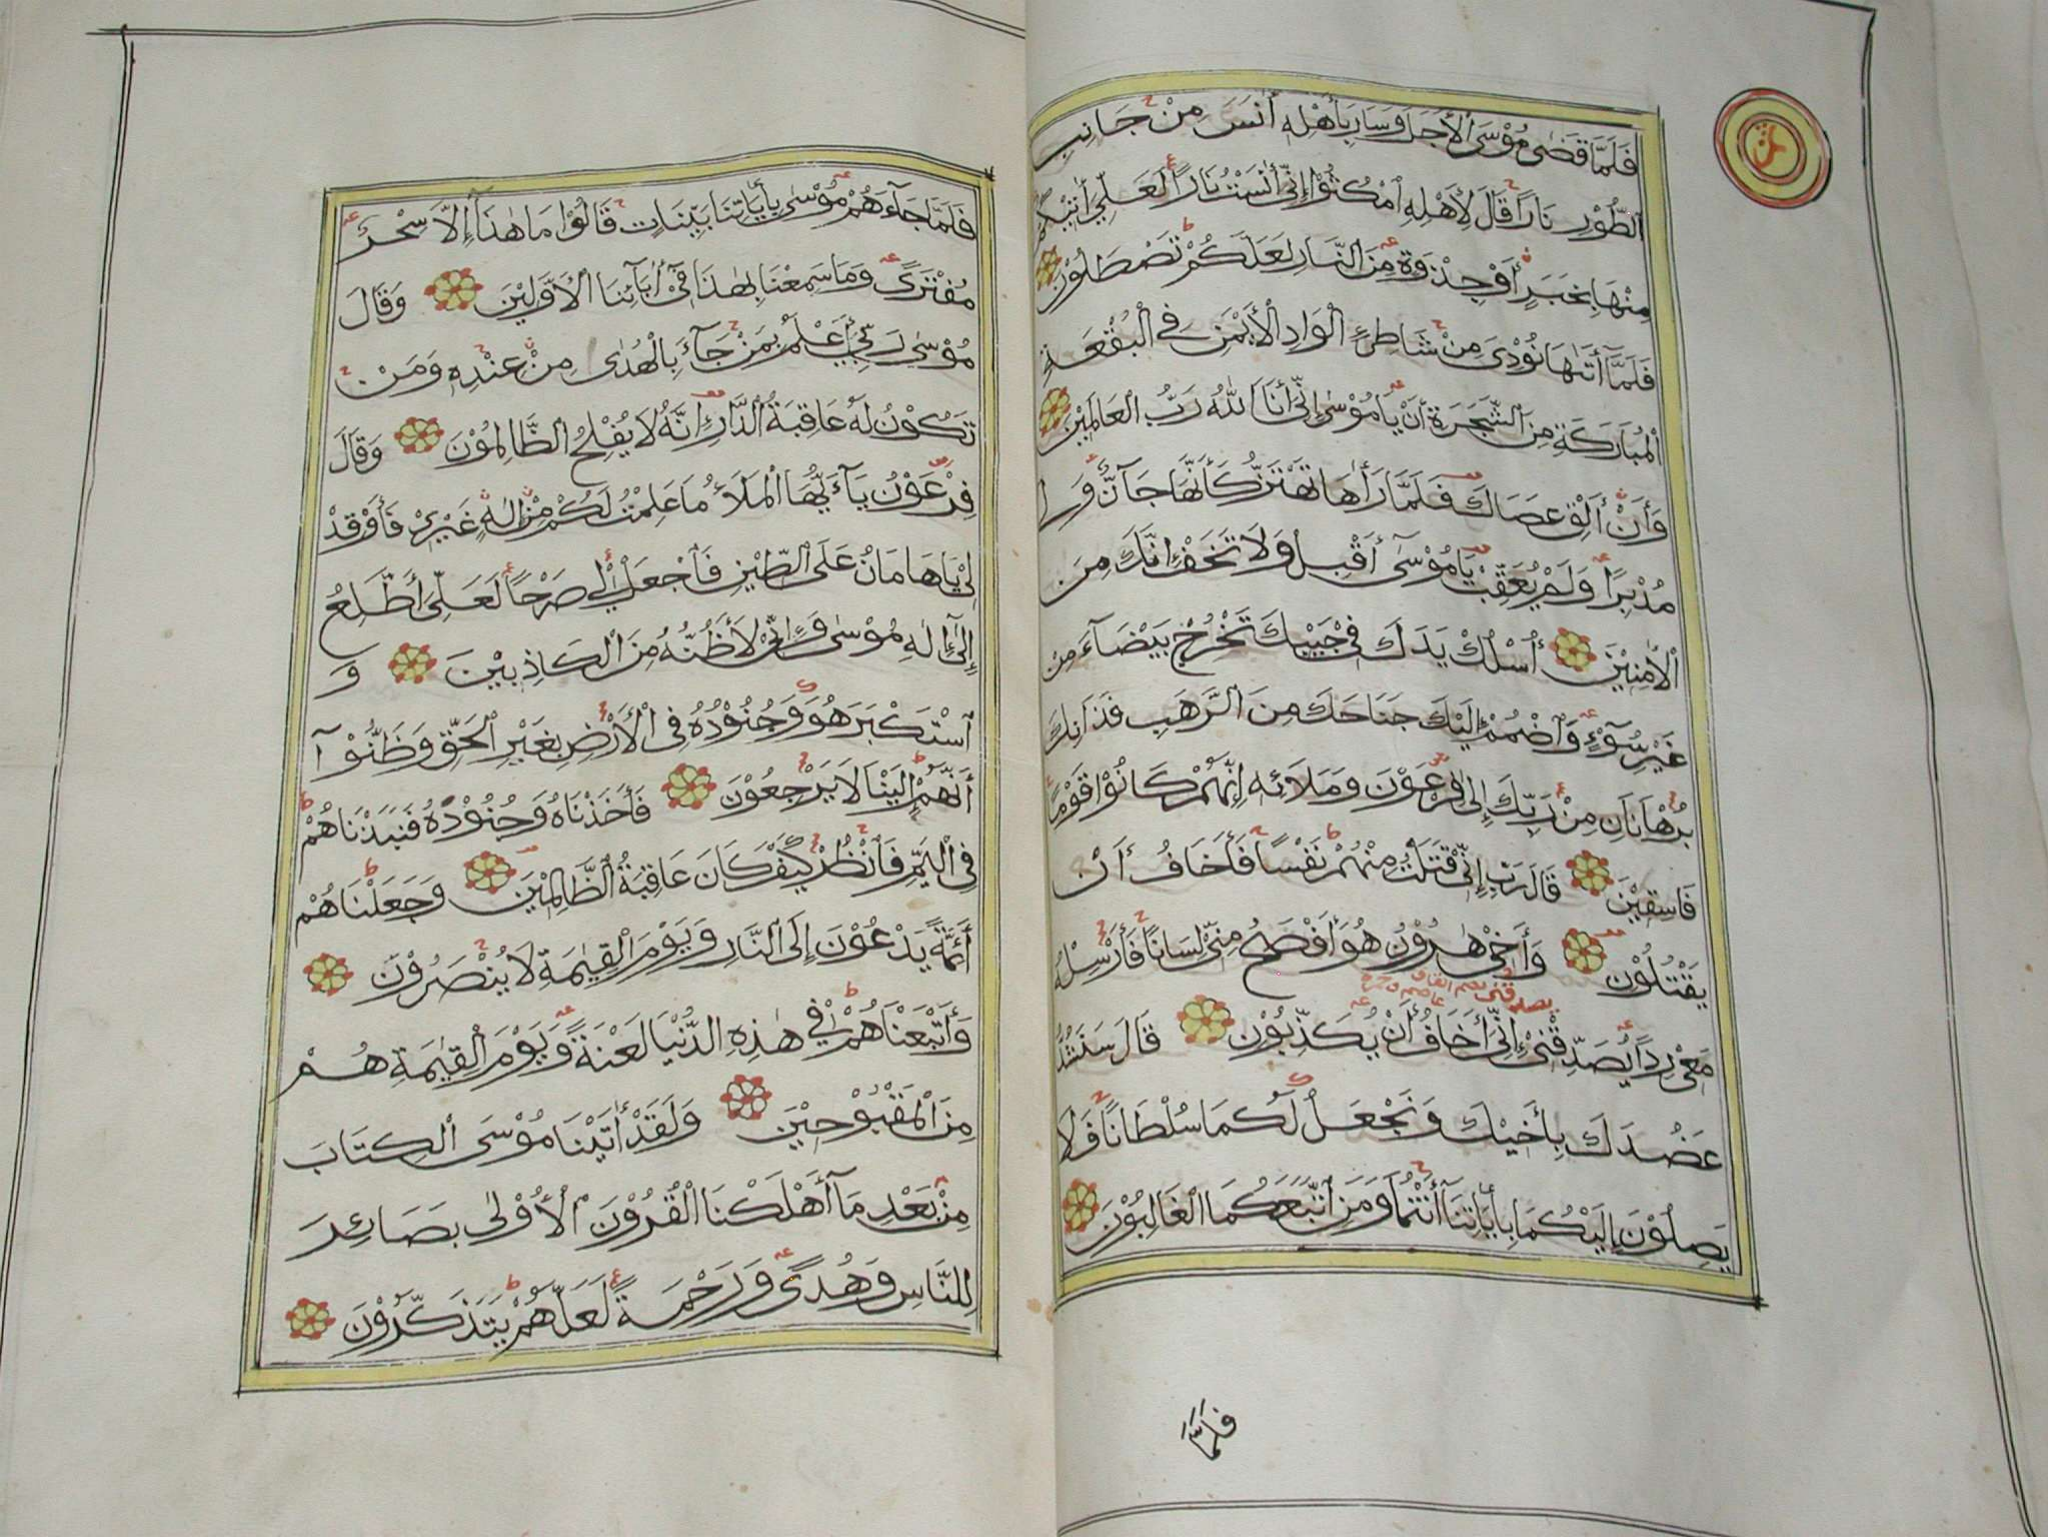 فَلَمَّا قَضٰى مُوْسَى الْأَجَلَ وَسَارَ بِأَهْلِهِ أٰنَسَ مِنْ جَانِبِ
الطُّوْرِ نَارًا قَالَ لِأَهْلِهِ امْكُثُوْا إِنِّيْ أٰنَسْتُ نَارًا لَعَلِّيْ أٰتِيْكُمْ
مِنْهَا بِخَبَرٍ أَوْ جِذْوَةٍ مِنَ النَّارِ لَعَلَّكُمْ تَصْطَلُوْنَ
فَلَمَّآ أَتٰىهَا نُوْدِيَ مِنْ شَاطِئِ الْوَادِ الْأَيْمَنِ فِي الْبُقْعَةِ
الْمُبَارَكَةِ مِنَ الشَّجَرَةِ أَنْ يَا مُوْسٰى إِنِّيْ أَنَا اللّٰهُ رَبُّ الْعَالَمِيْنَ
وَأَنْ أَلْقِ عَصَاكَ فَلَمَّا رَأٰهَا تَهْتَزُّ كَأَنَّهَا جَآنٌّ وَلّٰى
مُدْبِرًا وَلَمْ يُعَقِّبْ يَا مُوْسٰٓى أَقْبِلْ وَلَا تَخَفْ إِنَّكَ مِنَ
الْأٰمِنِيْنَ أُسْلُكْ يَدَكَ فِيْ جَيْبِكَ تَخْرُجْ بَيْضَآءَ مِنْ
غَيْرِ سُوْٓءٍ وَاضْمُمْ إِلَيْكَ جَنَاحَكَ مِنَ الرَّهَبِ فَذَانِكَ
بُرْهَانَانِ مِنْ رَبِّكَ إِلٰى فِرْعَوْنَ وَمَلَائِهِ إِنَّهُمْ كَانُوْا قَوْمًا
فَاسِقِيْنَ قَالَ رَبِّ إِنِّيْ قَتَلْتُ مِنْهُمْ نَفْسًا فَأَخَافُ أَنْ
يَقْتُلُوْنِ وَأَخِيْ هٰرُوْنُ هُوَ أَفْصَحُ مِنِّيْ لِسَانًا فَأَرْسِلْهُ
مَعِيَ رِدْأً يُصَدِّقُنِيْ إِنِّيْ أَخَافُ أَنْ يُكَذِّبُوْنِ قَالَ سَنَشُدُّ
عَضُدَكَ بِأَخِيْكَ وَنَجْعَلُ لَكُمَا سُلْطَانًا فَلَا
يَصِلُوْنَ إِلَيْكُمَا بِأٰيَاتِنَا أَنْتُمَا وَمَنِ اتَّبَعَكُمَا الْغَالِبُوْنَ
فلمّا
فَلَمَّا جَآءَهُمْ مُوْسٰى بِأٰيَاتِنَا بَيِّنَاتٍ قَالُوْا مَا هٰذَآ إِلَّا سِحْرٌ
مُفْتَرًى وَمَا سَمِعْنَا بِهٰذَا فِيْٓ أٰبَآئِنَا الْأَوَّلِيْنَ وَقَالَ
مُوْسٰى رَبِّيْٓ أَعْلَمُ بِمَنْ جَآءَ بِالْهُدٰى مِنْ عِنْدِهِ وَمَنْ
تَكُوْنُ لَهُ عَاقِبَةُ الدَّارِ إِنَّهُ لَا يُفْلِحُ الظَّالِمُوْنَ وَقَالَ
فِرْعَوْنُ يَآءَيُّهَا الْمَلَأُ مَا عَلِمْتُ لَكُمْ مِنْ إِلٰهٍ غَيْرِيْ فَأَوْقِدْ
لِيْ يَاهَامَانُ عَلَى الطِّيْنِ فَاجْعَلْ لِيْ صَرْحًا لَعَلِّيْ أَطَّلِعُ
إِلٰىٓ إِلٰهِ مُوْسٰى وَإِنِّيْ لَأَظُنُّهُ مِنَ الْكَاذِبِيْنَ وَ
اسْتَكْبَرَ هُوَ وَجُنُوْدُهُ فِى الْأَرْضِ بِغَيْرِ الْحَقِّ وَظَنُّوْآ
أَنَّهُمْ إِلَيْنَا لَا يَرْجِعُوْنَ فَأَخَذْنَاهُ وَجُنُوْدَهُ فَنَبَذْنَاهُمْ
فِى الْيَمِّ فَانْظُرْ كَيْفَ كَانَ عَاقِبَةُ الظَّالِمِيْنَ وَجَعَلْنَاهُمْ
أَئِمَّةً يَدْعُوْنَ إِلَى النَّارِ وَيَوْمَ الْقِيٰمَةِ لَا يُنْصَرُوْنَ
وَأَتْبَعْنَاهُمْ فِيْ هٰذِهِ الدُّنْيَا لَعْنَةً وَيَوْمَ الْقِيٰمَةِ هُمْ
مِنَ الْمَقْبُوْحِيْنَ وَلَقَدْ أٰتَيْنَا مُوْسَى الْكِتَابَ
مِنْ بَعْدِ مَآ أَهْلَكْنَا الْقُرُوْنَ الْأُوْلٰى بَصَائِرَ
لِلنَّاسِ وَهُدًى وَرَحْمَةً لَعَلَّهُمْ يَتَذَكَّرُوْنَ